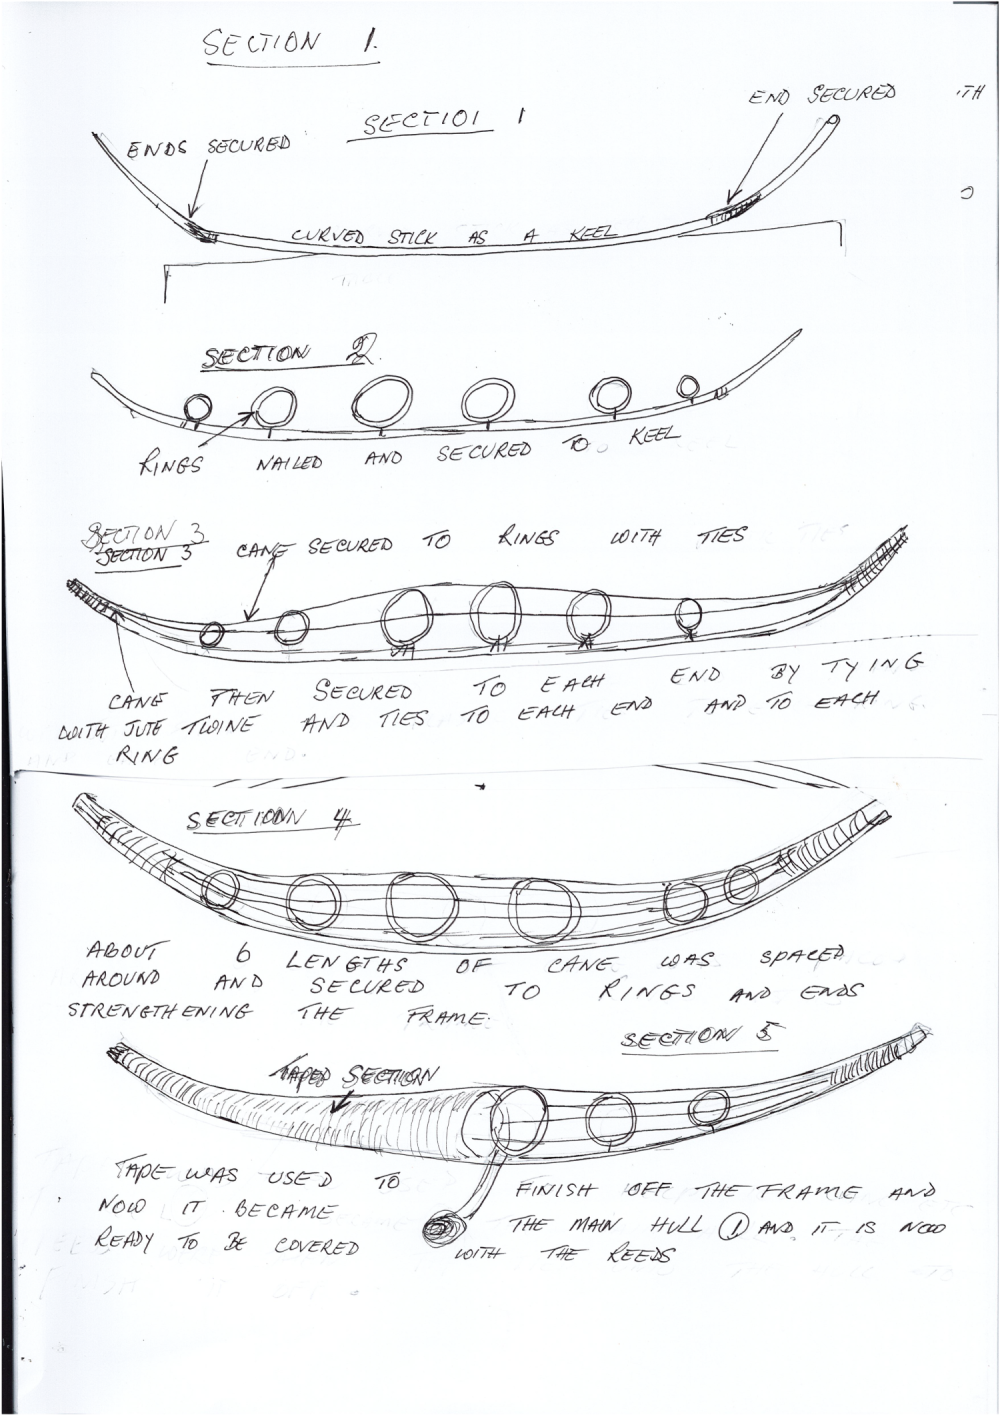 SECTION 1.
SECTIOI 1
END SECURED
.TH
ENDS SECURED
CURVED STICK AS A KEEL
SECTION 2
RINGS NAILED AND SECURED TO KEEL
SECTION 3
SECTION 3
CANE SECURED TO RINGS WITH TIES
CANE THEN SECURED TO EACH END BY TYING
WITH JUTE TWINE AND TIES TO EACH END AND TO EACH
RING
SECTIONN 4
ABOUT 6 LENGTHS OF CANE WAS SPACED
AROUND AND SECURED TO RINGS AND ENDS
STRENGTHENING THE FRAME.
SECTION 5
TAPED SECTION
TAPE WAS USED TO FINISH OFF THE FRAME AND
NOW IT BECAME THE MAIN HULL 1 AND IT IS NOW
READY TO BE COVERED WITH THE REEDS